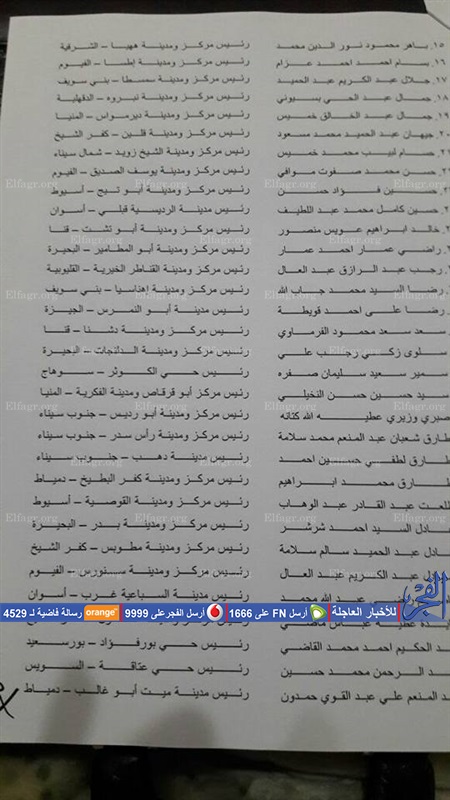 ١٥. ماهر محمود نور الدين محمد رئيس مركز ومدينة ههيا – الشرقية
١٦. بسام احمد احمد عزام رئيس مركز ومدينة إطسا – الفيوم
١٧. جلال عبد الكريم عبد الحميد رئيس مركز ومدينة سمسطا – بني سويف
١٨. جمال عبد الحي بسيوني رئيس مركز ومدينة نبروه – الدقهلية
١٩. جمال عبد الخالق خميس رئيس مركز ومدينة ديرمواس – المنيا
جيهان عبد الحميد محمد مسعود رئيس مركز ومدينة قلين – كفر الشيخ
حسام لبيب محمد خميس رئيس مركز ومدينة الشيخ زويد – شمال سيناء
حسن محمد صفوت موافي رئيس مركز ومدينة يوسف الصديق – الفيوم
فؤاد حسن رئيس مركز ومدينة أبو تيج – أسيوط
حسين كامل محمد عبد اللطيف رئيس مدينة الرديسية قبلي – أسوان
خالد ابراهيم عويس منصور رئيس مركز ومدينة أبو تشت – قنا
راضي عمار احمد عمار رئيس مركز ومدينة أبو المطامير – البحيرة
رجب عبد الرازق عبد العال رئيس مركز ومدينة القناطر الخيرية – القليوبية
رضا السيد محمد جاب الله رئيس مركز ومدينة إهناسيا – بني سويف
رضا على احمد قويطة رئيس مدينة أبو النمرس – الجيزة
سعد سعد محمود الفرماوي رئيس مركز ومدينة دشنا – قنا
سلوى زكي رجب علي رئيس مركز ومدينة الدلنجات – البحيرة
سمير سعيد سليمان صفره رئيس حي الكوثر – سوهاج
سيد حسين حسن النخيلي رئيس مركز أبو قرقاص ومدينة الفكرية – المنيا
صبري وزيري عطيه الله كتانه رئيس مركز ومدينة أبو رديس – جنوب سيناء
طارق شعبان عبد المنعم محمد سلامة رئيس مركز ومدينة رأس سدر – جنوب سيناء
طارق لطفي حسين احمد رئيس مدينة دهب – جنوب سيناء
طارق محمد ابراهيم رئيس مركز ومدينة كفر البطيخ – دمياط
طلعت عبد القادر عبد الوهاب رئيس مركز ومدينة القوصية – أسيوط
عادل السيد احمد شرشر رئيس مركز ومدينة بدر – البحيرة
عادل عبد الحميد سالم سلامة رئيس مركز ومدينة مطوبس – كفر الشيخ
عادل عبد الكريم عبد العال رئيس مركز ومدينة سنورس – الفيوم
عبد الله محمد رئيس مدينة السباعية غرب – أسوان
الفجر للأخبار العاجلة أرسل FN على 1666 أرسل الفجر على 9999 orange رسالة فاضية لـ 4529
عبد الحكيم احمد محمد القاضي رئيس حي بورفؤاد – بورسعيد
عبد الرحمن محمد حسين رئيس حي عتاقة – السويس
عبد المنعم علي عبد القوي حمدون رئيس مدينة ميت أبو غالب – دمياط
Elfagr.org